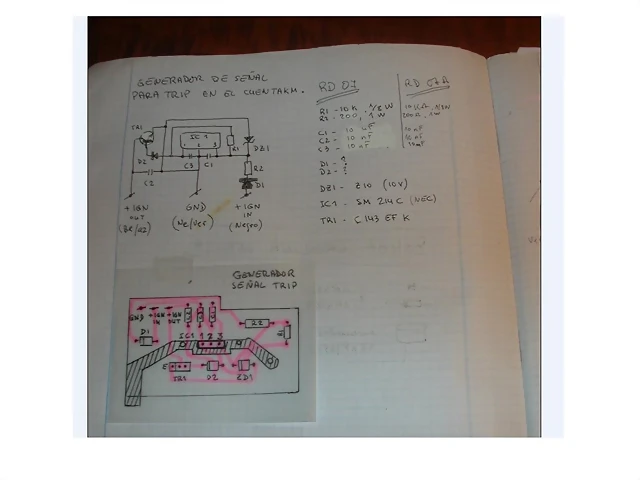 GENERADOR DE SEÑAL
PARA TRIP EN EL CUENTAKM.
TR1
IC1
1 2 3
R1
DZ1
D2
C3
C1
R2
C2
D1
+IGN
OUT
GND
(Ne/Ver)
+IGN
IN
(Negro)
RD 07
R1 - 10K, 1/8 W
R2 - 200, 1 W
C1 - 10
C2 - 10 nF
C3 - 10 nF
D1 - ?
D2 - ?
DZ1 - Z10 (10V)
IC1 - SM 214C (NEC)
TR1 - C143 EF K
RD 07R
10 nF
10 nF
GENERADOR
SEÑAL TRIP
GND
+IGN
IN
+IGN
OUT
D1
IC1
1 2 3
R2
E
TR1
D2
ZD1